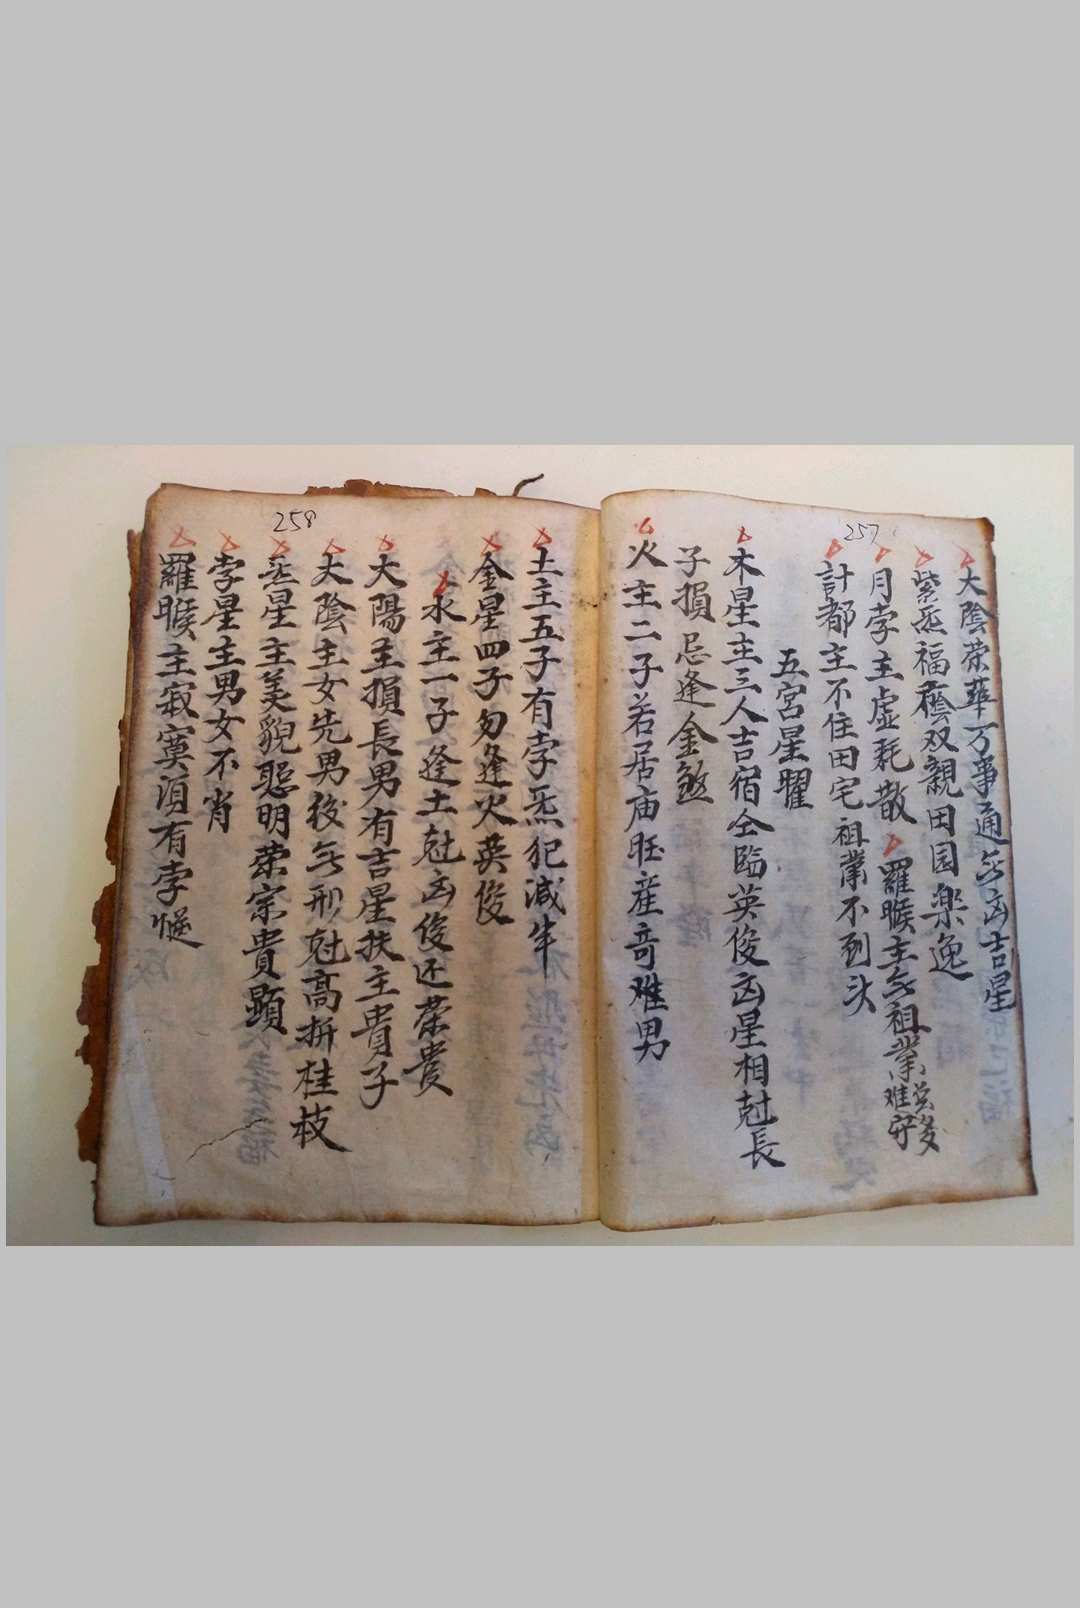 257
大陰荣華万事通无凶吉星
紫炁福廕双親田园樂逸
月孛主虛耗散
羅睺主无祖業总多难守
計都主不住田宅祖業不到头
五宮星曜
木星主三人吉宿仝臨英俊凶星相尅長
子損忌逢金煞
火主二子若居庙旺産奇难男
258
土主五子有孛炁犯減半
金星四子勿逢火英俊
水主一子逢土尅凶俊还荣贵
大陽主損長男有吉星扶主貴子
大陰主女先男後无刑尅高折桂枝
炁星主美貌聪明荣宗貴顕
孛星主男女不肖
羅睺主寂寞須有孛